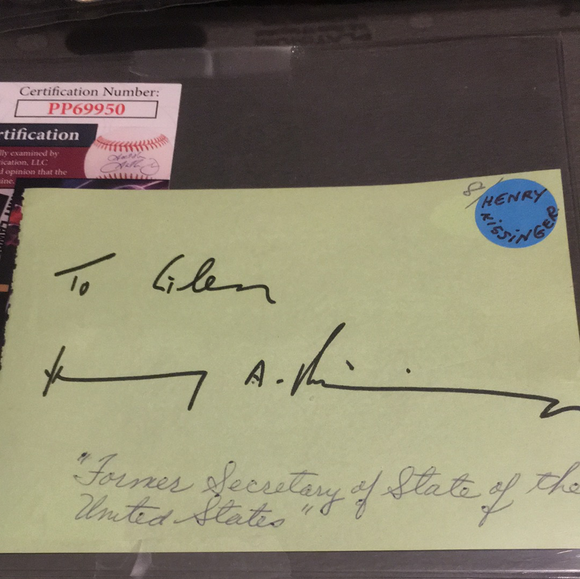 Certification Number:
PP69950
rtification
ly examined by
ication, LLC
d opinion that the
ine.
HENRY
KISSINGER
To Glenn
Henry A. Kissinger
"Former Secretary of State of the
United States"